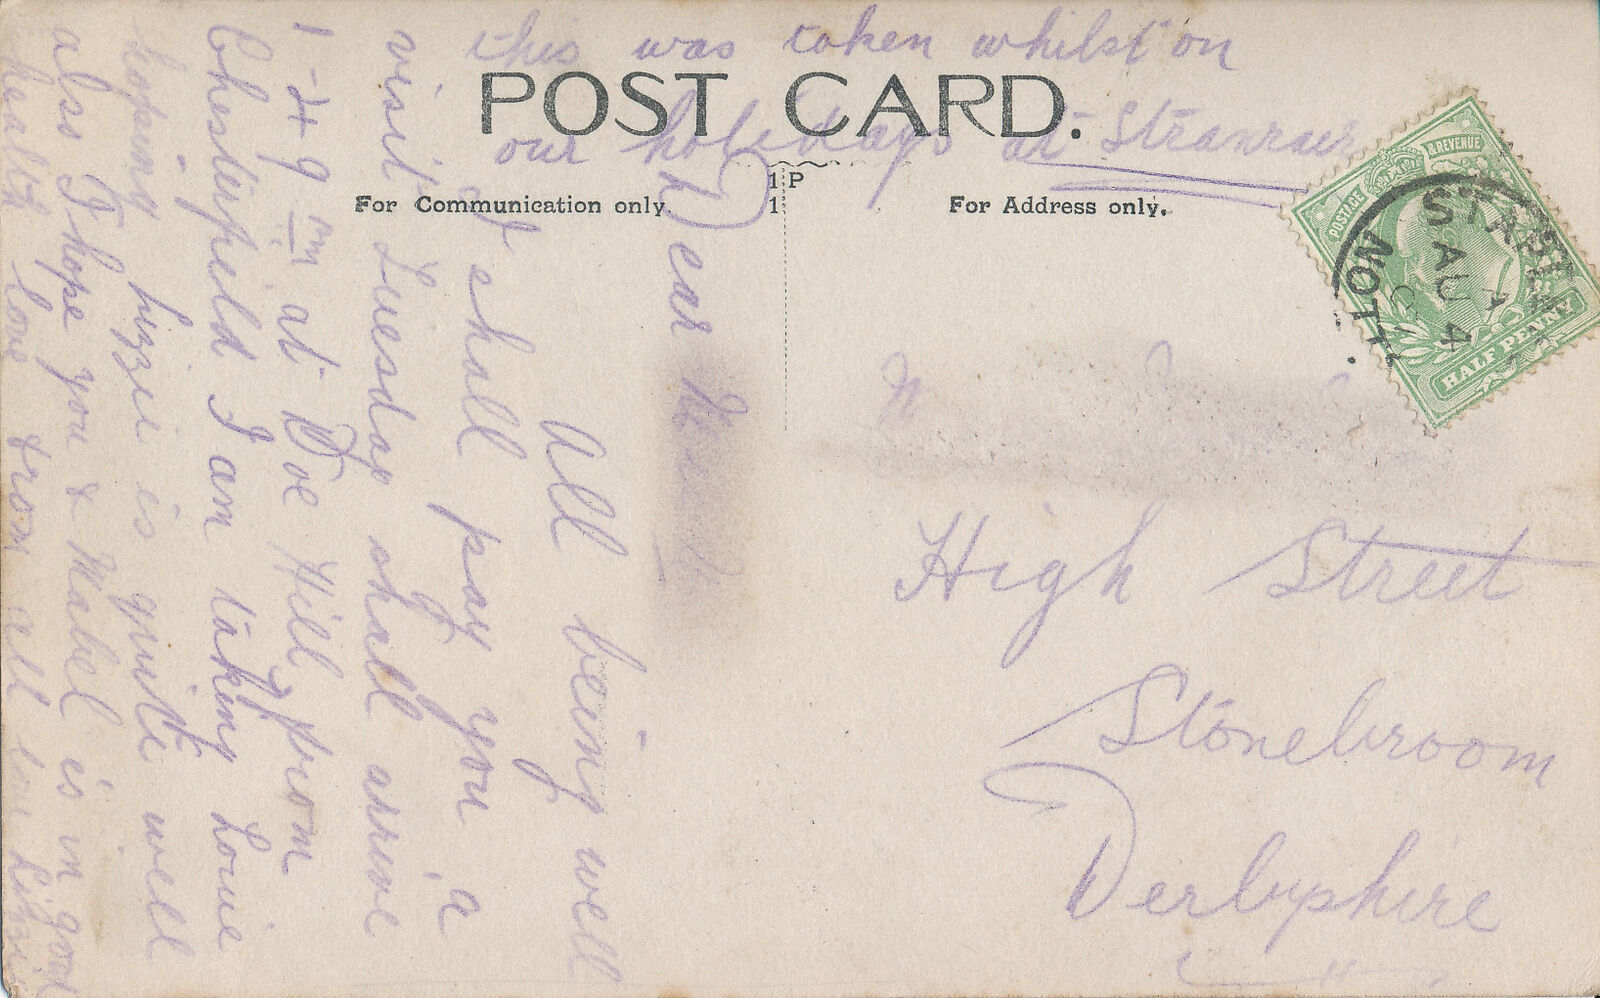 this was taken whilst on
POST CARD.
our holidays at Stranraer
1 P
1
For Communication only.
For Address only.
POSTAGE
& REVENUE
HALF PENNY
STAPLEF
AU 4
NOTTS
High Street
Stonebroom
Derbyshire
Dear
All being well
I shall pay you a
visit Tuesday shall arrive
at Doe Hill from
Chesterfield I am taking Louie
hoping Lizzie is quite well
also I hope you & Mabel is in good
health love from all